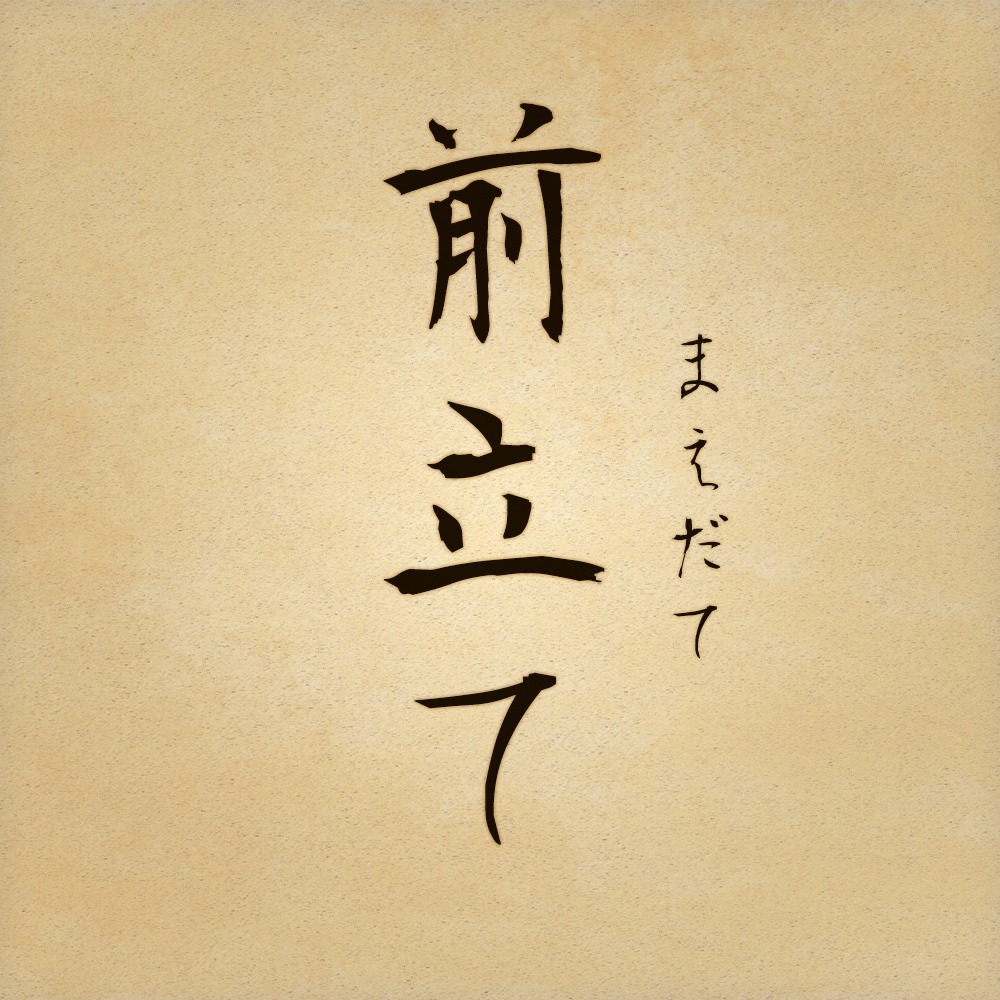 前立て
まえだて